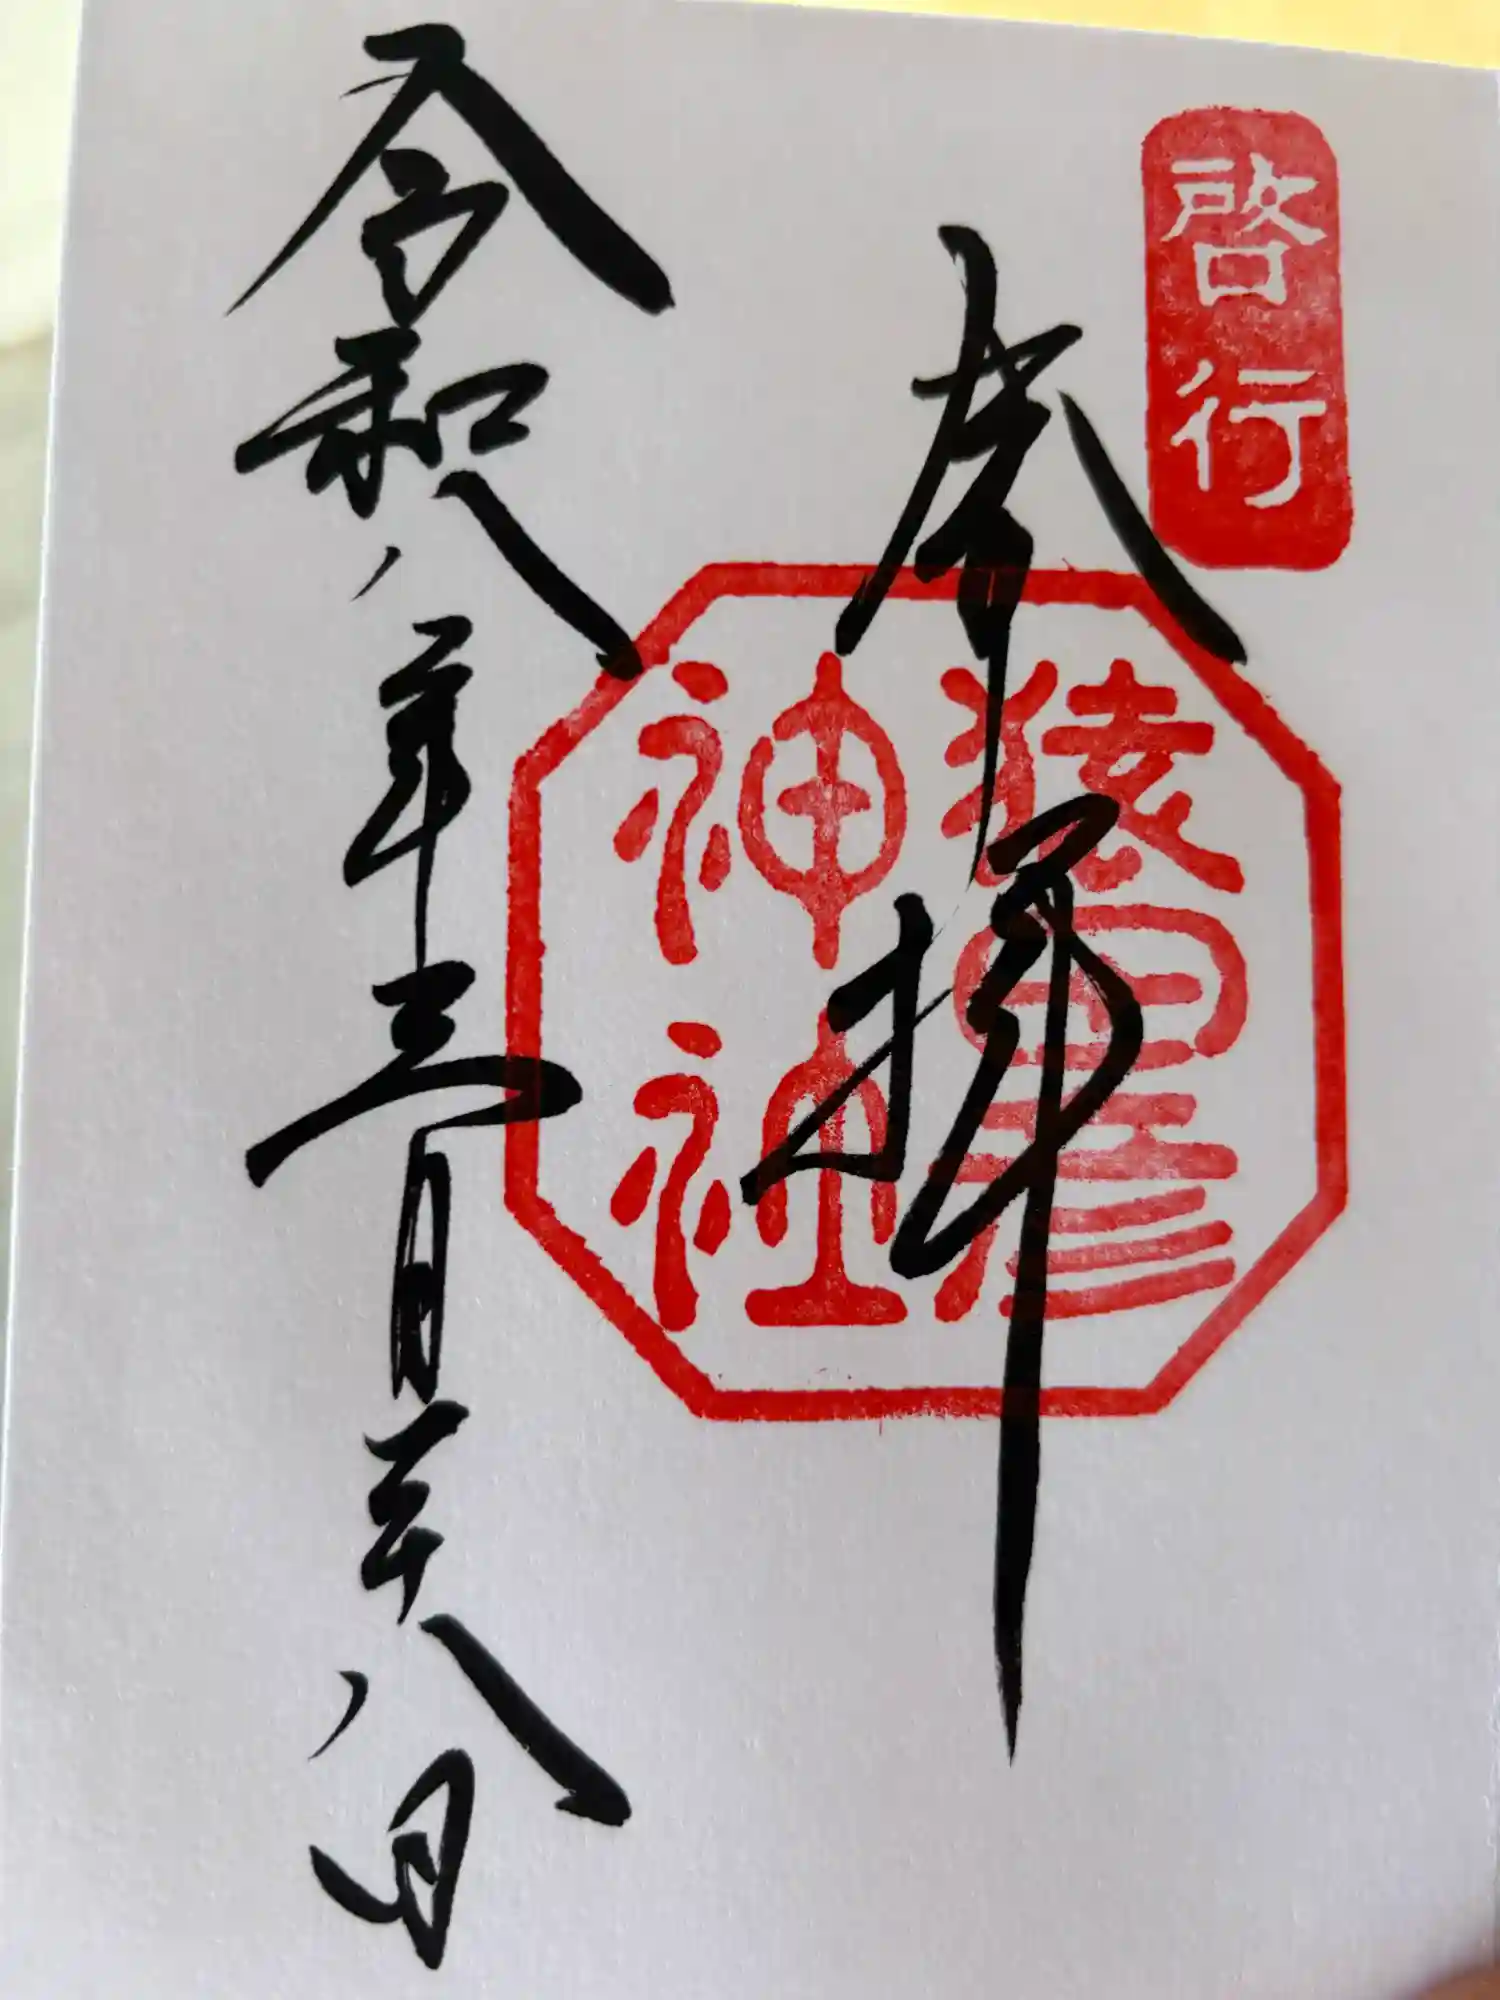 啓行
奉拝
猿田彦
神社
令和八年三月二十八日